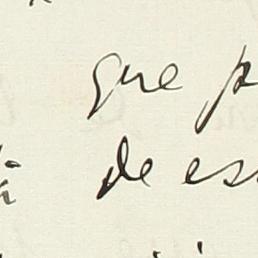 que p
de es